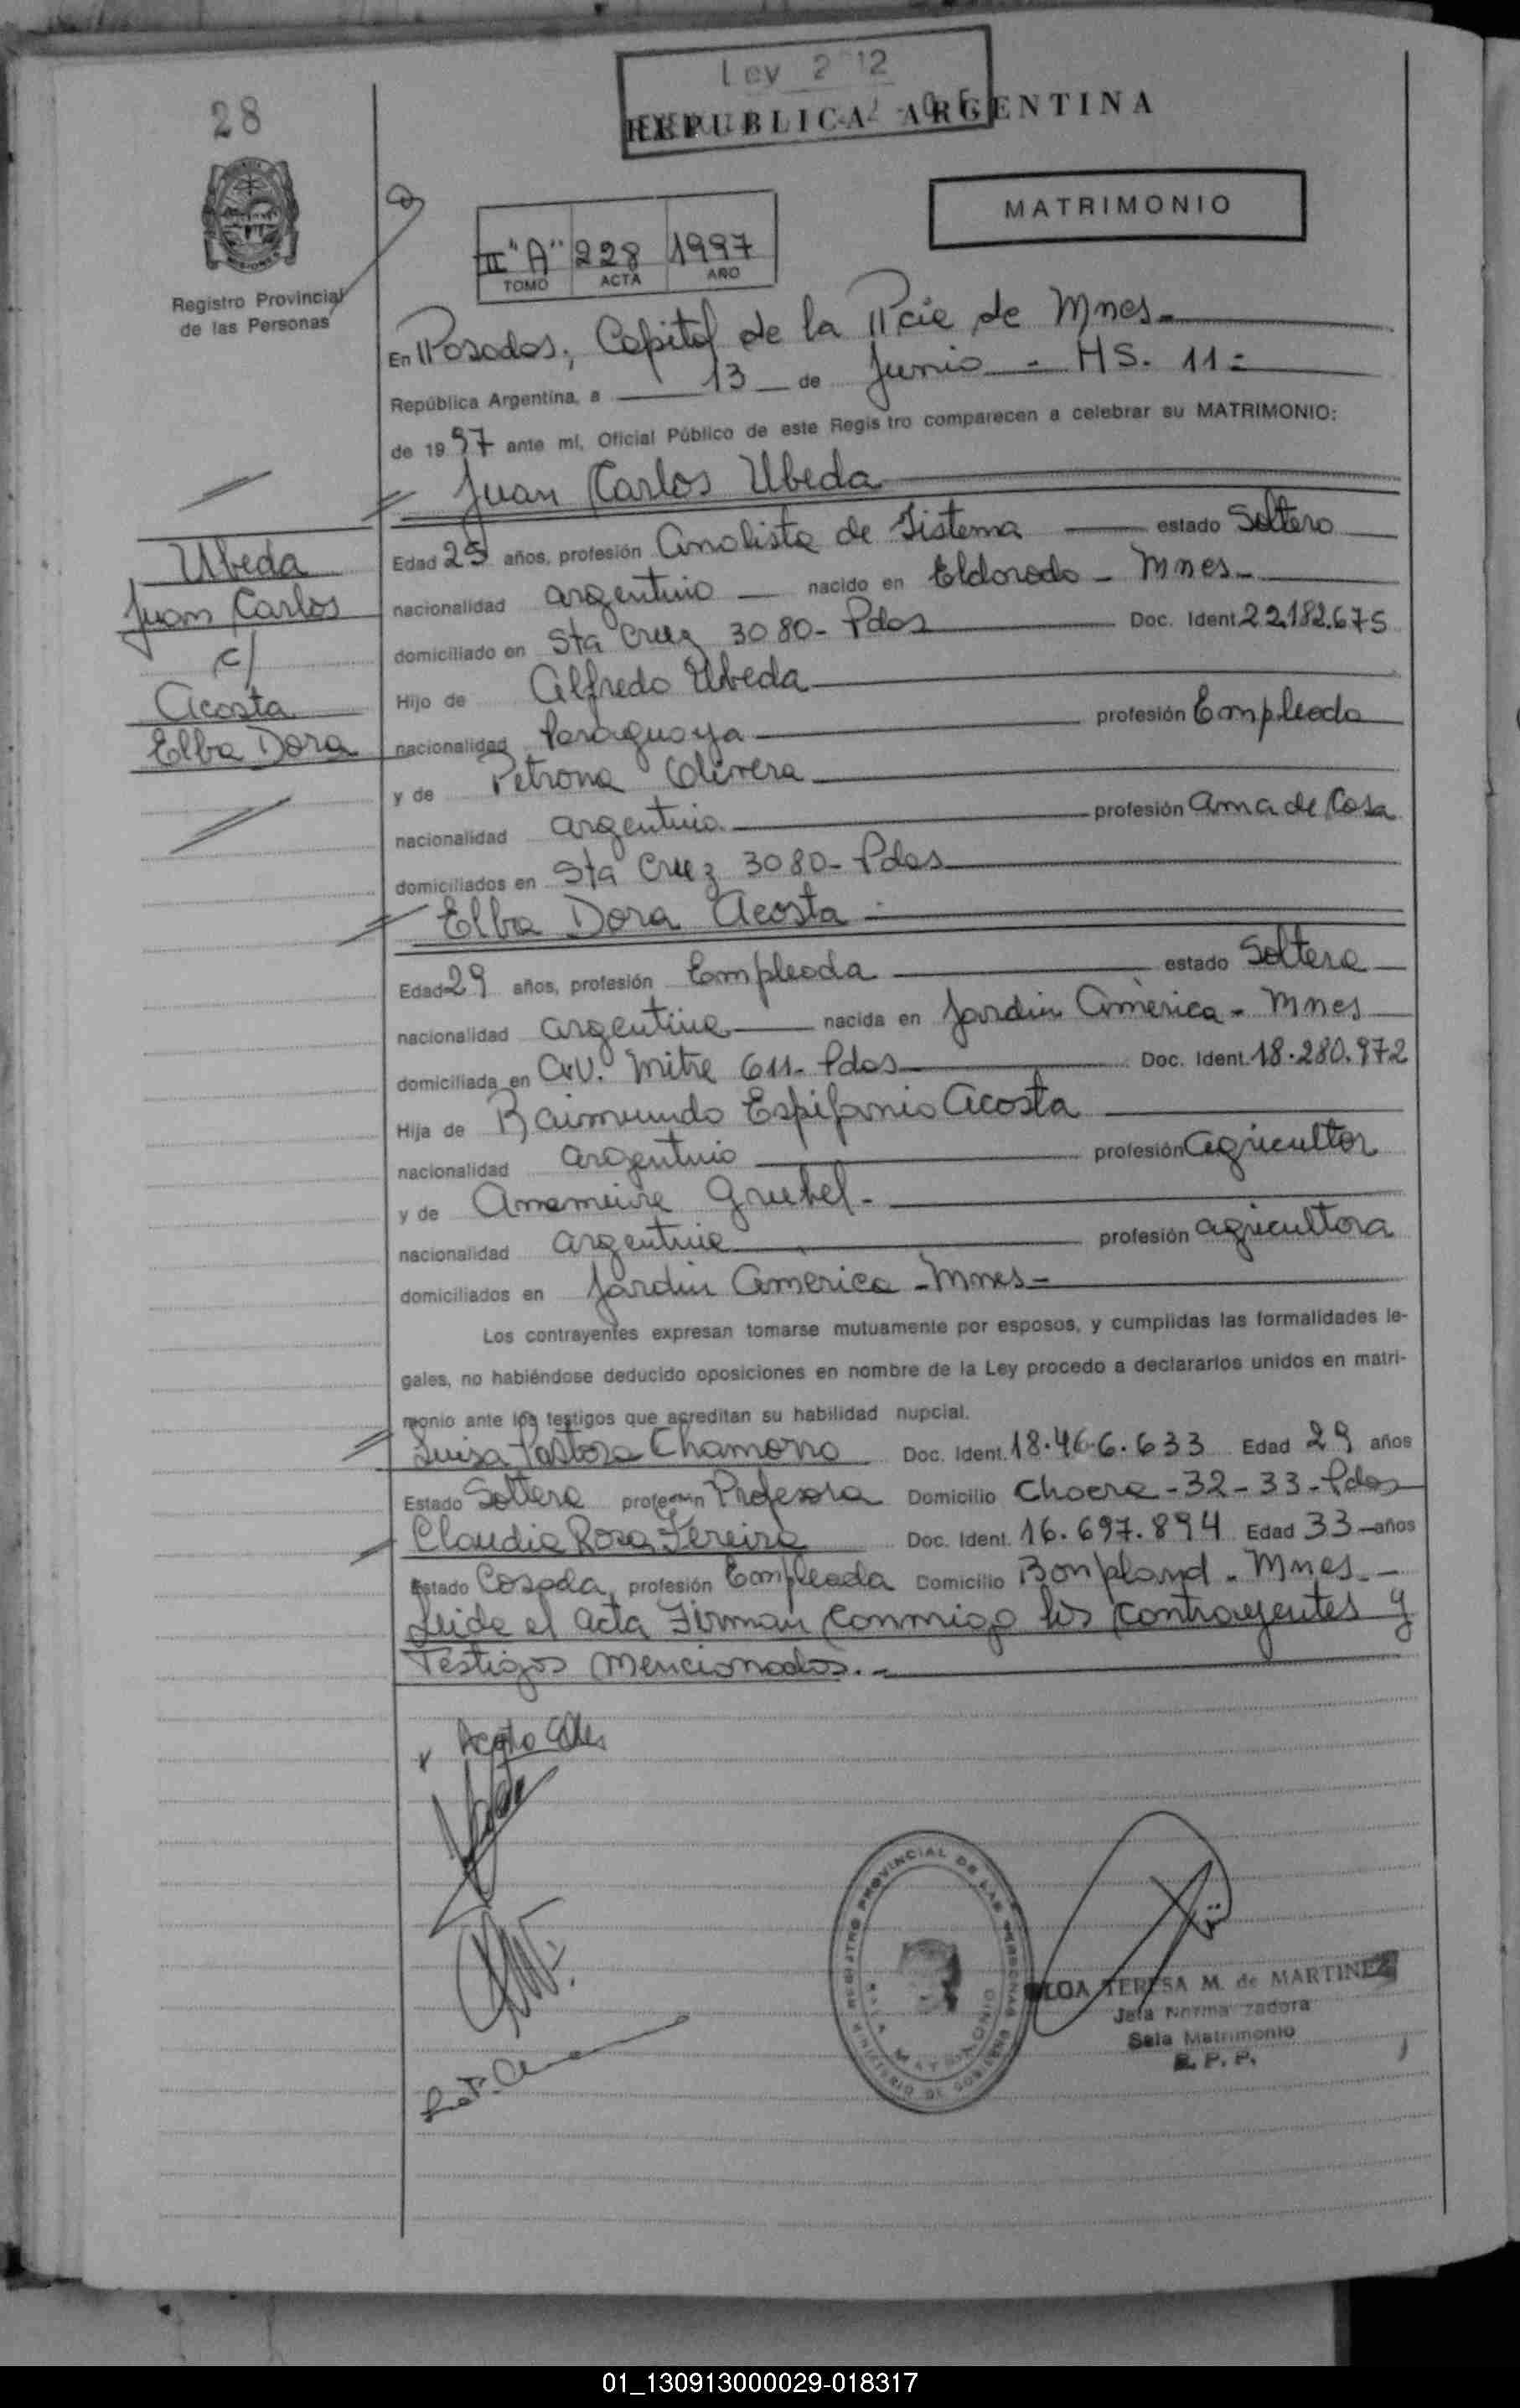 28
Ley 2 12
REPUBLICA ARGENTINA
MATRIMONIO
Registro Provincial
de las Personas
II "A" 228 1997
TOMO ACTA AÑO
En Posadas, Capital de la Pcia de Mnes.
República Argentina, a 13 de Junio - HS. 11=
de 1997 ante mí, Oficial Público de este Registro comparecen a celebrar su MATRIMONIO:
Juan Carlos Ubeda
Ubeda
Juan Carlos
c/
Acosta
Elba Dora
Edad 25 años, profesión Analista de Sistema estado Soltero
nacionalidad argentino nacido en Eldorado - Mnes.
domiciliado en Sta Cruz 3080 - Pdas Doc. Ident. 22.182.675
Hijo de Alfredo Ubeda
nacionalidad Paraguaya profesión Empleado
y de Petrona Olivera
nacionalidad argentina profesión Ama de Casa
domiciliados en Sta Cruz 3080 - Pdas
Elba Dora Acosta
Edad 29 años, profesión Empleada estado Soltera
nacionalidad argentina nacida en Jardin América - Mnes
domiciliada en Av. Mitre 611 - Pdas Doc. Ident. 18.280.972
Hija de Raimundo Espifanio Acosta
nacionalidad argentino profesión agricultor
y de Grubel
nacionalidad argentina profesión agricultora
domiciliados en Jardin America - Mnes -
Los contrayentes expresan tomarse mutuamente por esposos, y cumplidas las formalidades le-
gales, no habiéndose deducido oposiciones en nombre de la Ley procedo a declararlos unidos en matri-
monio ante los testigos que acreditan su habilidad nupcial.
Luisa Pastora Chamorro Doc. Ident. 18.466.633 Edad 29 años
Estado Soltera profesión Profesora Domicilio Chacra - 32 - 33 - Pdas
Claudia Rosa Fereira Doc. Ident. 16.697.894 Edad 33 años
Estado Casada profesión Empleada Domicilio Bonpland - Mnes -
Leida el acta Firman conmigo los contrayentes y
Testigos mencionados. -
REGISTRO PROVINCIAL DE LAS PERSONAS
MINISTERIO DE GOBIERNO
SALA MATRIMONIO
TERESA M. de MARTINEZ
Jefa Normalizadora
Sala Matrimonio
R. P. P.
01_130913000029-018317